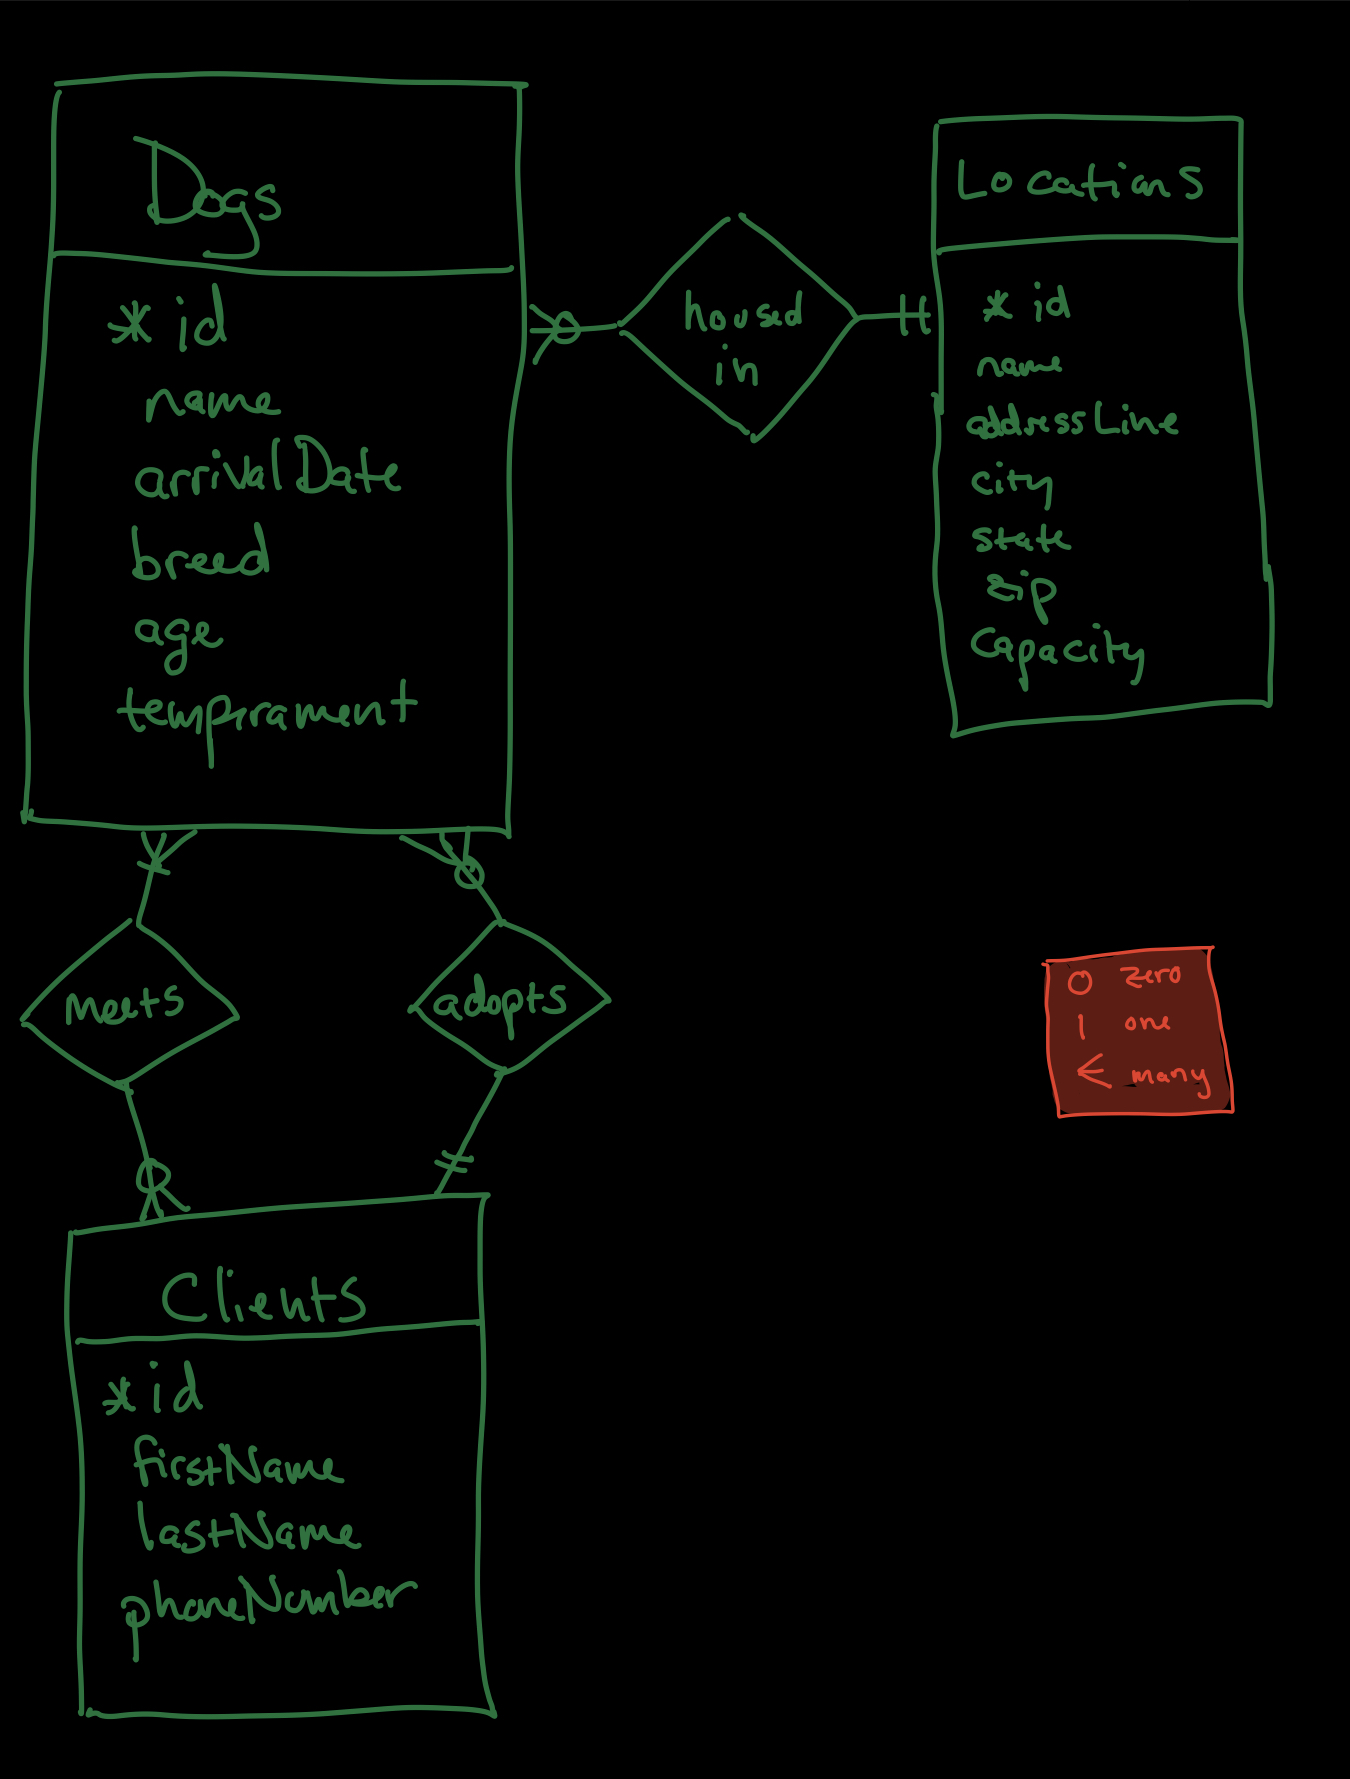 Dogs
* id
name
arrivalDate
breed
age
temprament
housed
in
Locations
* id
name
addressLine
city
state
zip
capacity
meets
adopts
O zero
| one
< many
Clients
* id
firstName
lastName
phoneNumber